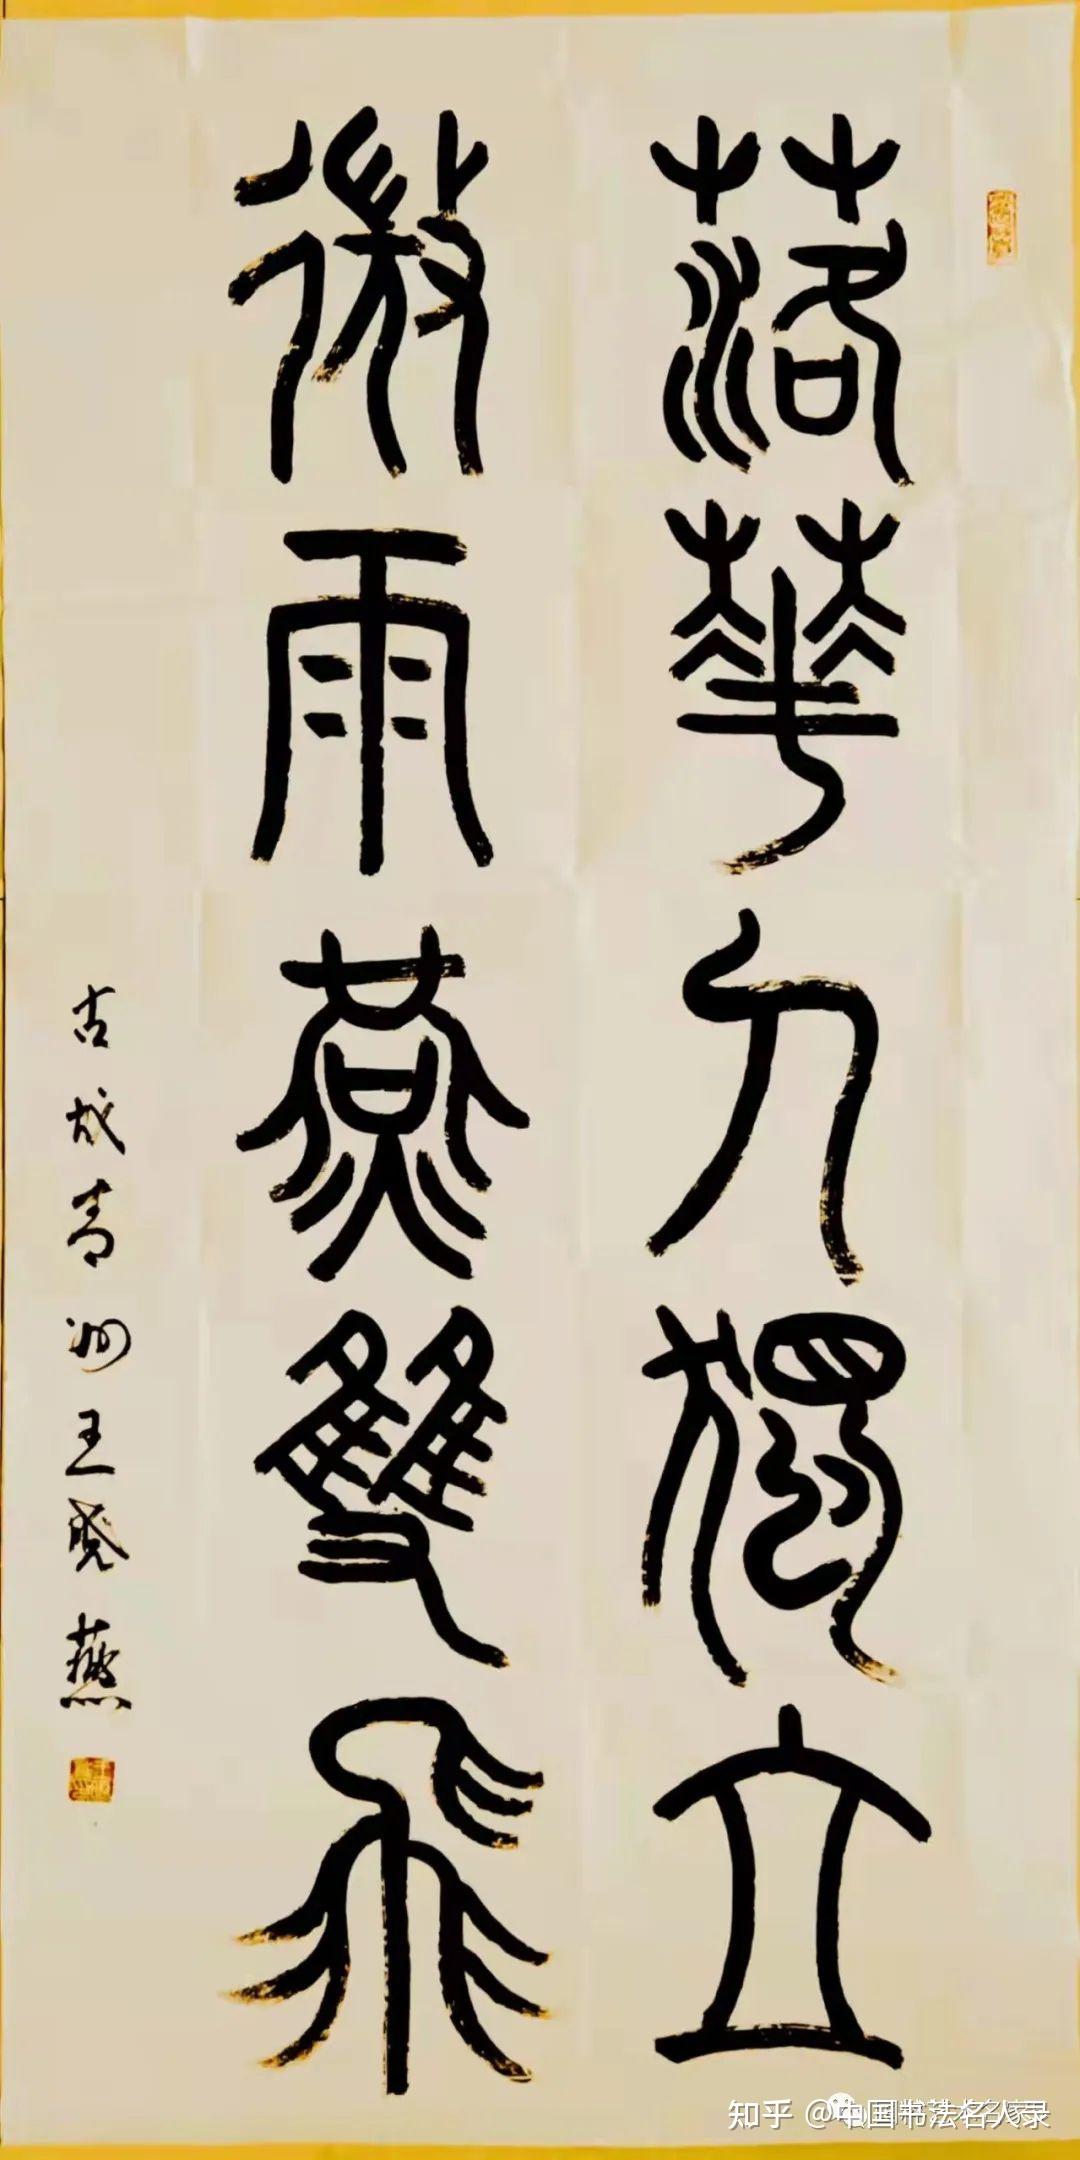 落華人獨立
微雨燕雙飛
古城青州王晓燕
知乎 @中国书法名人录